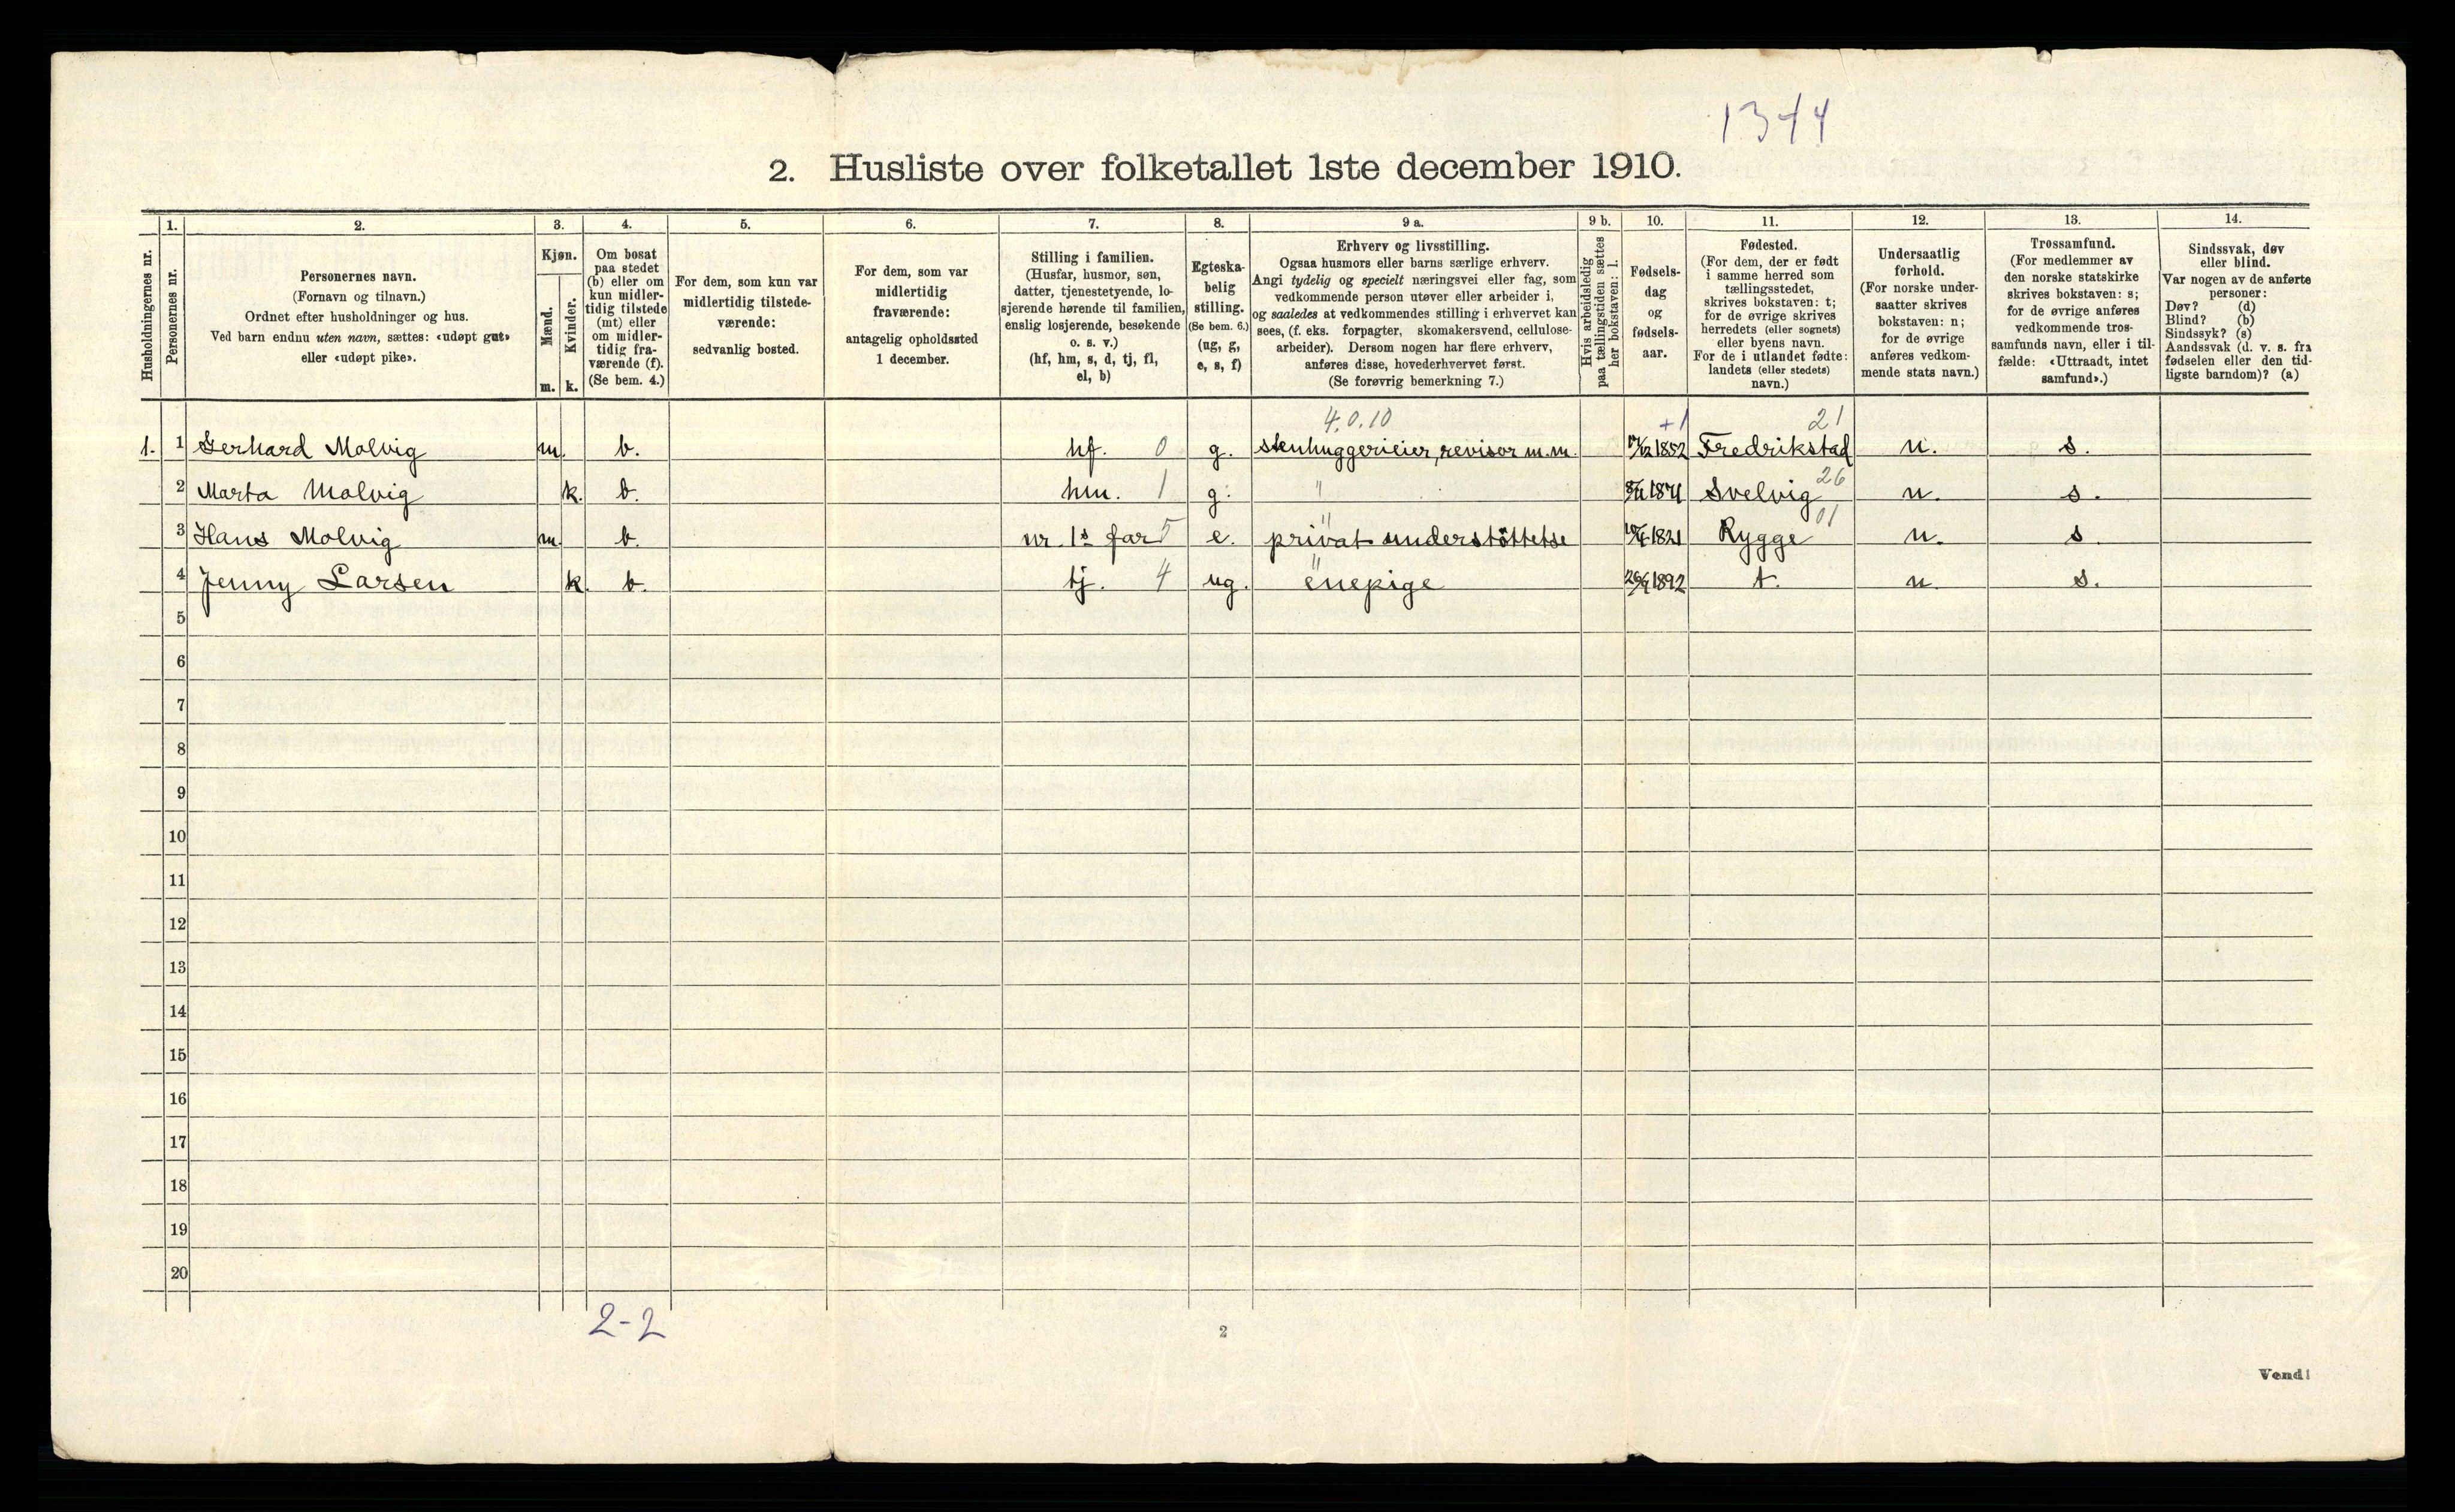 1344
2. Husliste over folketallet 1ste december 1910.
Husholdningernes nr.
1.
Personernes nr.
2.
Personernes navn.
(Fornavn og tilnavn.)
Ordnet efter husholdninger og hus.
Ved barn endnu uten navn, sættes: «udøpt gut»
eller «udøpt pike».
3.
Kjøn.
Mænd.
Kvinder.
m. k.
4.
Om bosat
paa stedet
(b) eller om
kun midler-
tidig tilstede
(mt) eller
om midler-
tidig fra-
værende (f).
(Se bem. 4.)
5.
For dem, som kun var
midlertidig tilstede-
værende:
sedvanlig bosted.
6.
For dem, som var
midlertidig
fraværende:
antagelig opholdssted
1 december.
7.
Stilling i familien.
(Husfar, husmor, søn,
datter, tjenestetyende, lo-
sjerende hørende til familien,
enslig losjerende, besøkende
o. s. v.)
(hf, hm, s, d, tj, fl,
el, b)
8.
Egteska-
belig
stilling.
(Se bem. 6.)
(ug, g,
e, s, f)
9 a.
Erhverv og livsstilling.
Ogsaa husmors eller barns særlige erhverv.
Angi tydelig og specielt næringsvei eller fag, som
vedkommende person utøver eller arbeider i,
og saaledes at vedkommendes stilling i erhvervet kan
sees, (f. eks. forpagter, skomakersvend, cellulose-
arbeider). Dersom nogen har flere erhverv,
anføres disse, hovederhvervet først.
(Se forøvrig bemerkning 7.)
9 b.
Hvis arbeidsledig
paa tællingstiden sættes
her bokstaven: l.
10.
Fødsels-
dag
og
fødsels-
aar.
11.
Fødested.
(For dem, der er født
i samme herred som
tællingsstedet,
skrives bokstaven: t;
for de øvrige skrives
herredets (eller sognets)
eller byens navn.
For de i utlandet fødte:
landets (eller stedets)
navn.)
12.
Undersaatlig
forhold.
(For norske under-
saatter skrives
bokstaven: n;
for de øvrige
anføres vedkom-
mende stats navn.)
13.
Trossamfund.
(For medlemmer av
den norske statskirke
skrives bokstaven: s;
for de øvrige anføres
vedkommende tros-
samfunds navn, eller i til-
fælde: «Uttraadt, intet
samfund».)
14.
Sindssvak, døv
eller blind.
Var nogen av de anførte
personer:
Døv? (d)
Blind? (b)
Sindssyk? (s)
Aandssvak (d. v. s. fra
fødselen eller den tid-
ligste barndom)? (a)
4.0.10 +1 21
1. 1 Gerhard Molvig m. b. hf. 0 g. stenhuggerieier, revisor m.m. 1852 Fredrikstad n. s.
2 Marta Molvig k. b. hm. 1 g. " Svelvig 26 n. s.
3 Hans Molvig m. b. nr. 1s far 5 e. privat understöttelse 1821 Rygge 01 n. s.
4 Jenny Larsen k. b. tj. 4 ug. enepige 1892 t. n. s.
5
6
7
8
9
10
11
12
13
14
15
16
17
18
19
20
2-2
2
Vend!